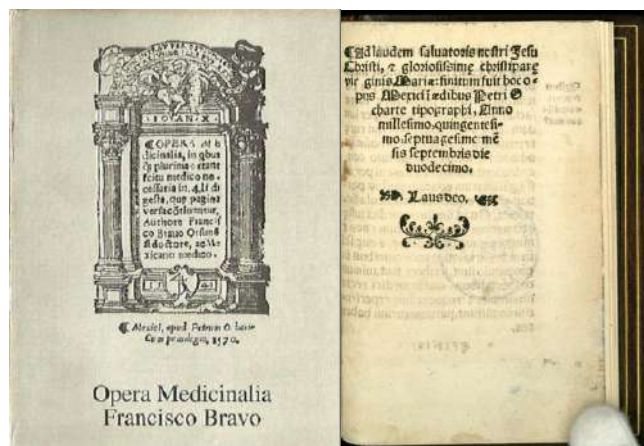 IOVAN. X.
¶ OPERA M
dicinalia, in qbus
necessaria in .4. li di
gesta, que pagina
Authore Francis
co Bravo
doctore, ac Me
xicano medico.
1549
¶ Mexici, apud Petrum O charte
Cum privilegio, 1570.
Opera Medicinalia
Francisco Bravo
¶ Ad laudem saluatoris nostri Jesu
Christi, & gloriosissimę christiparę
vir ginis Mariæ: finitum fuit hoc o-
pus Mexici ī ædibus Petri O
charte tipographi, Anno
millesimo, quingentesi-
mo, septuagesimo mē
sis septembris die
duodecimo.
Laus deo.